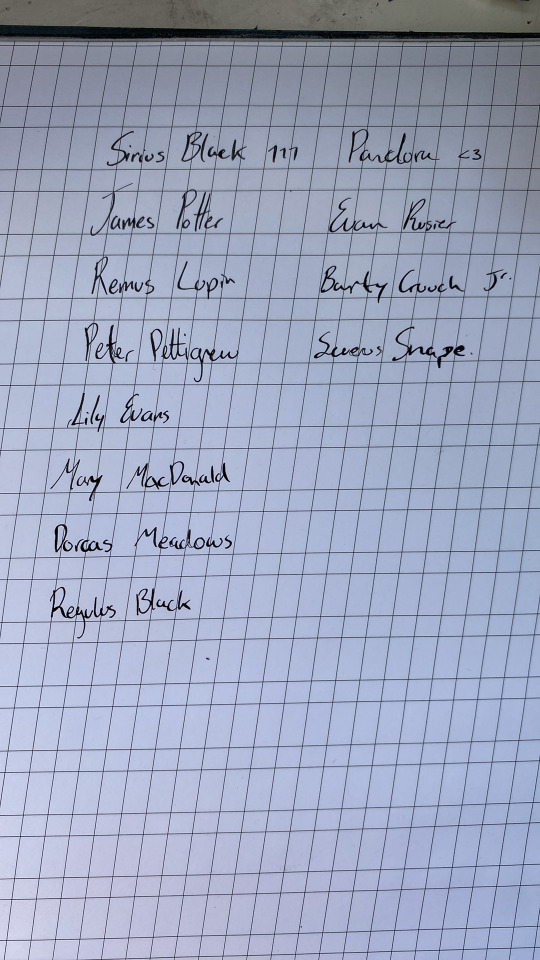 Sirius Black 777
James Potter
Remus Lupin
Peter Pettigrew
Lily Evans
Mary MacDonald
Dorcas Meadows
Regulus Black
Pandora <3
Evan Rosier
Barty Crouch Jr.
Severus Snape.